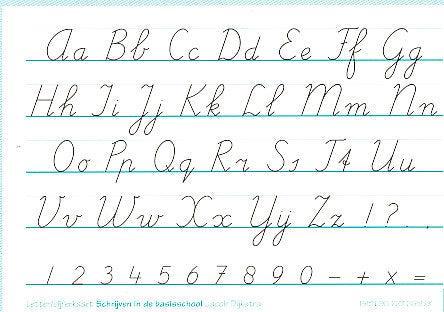 Aa Bb Cc Dd Ee Ff Gg
Hh Ii Jj Kk Ll Mm Nn
Oo Pp Qq Rr Ss Tt Uu
Vv Ww Xx Yy Zz ! ? . ,
1 2 3 4 5 6 7 8 9 0 - + x =
Schrijven in de basisschool Jacob Dijkstra